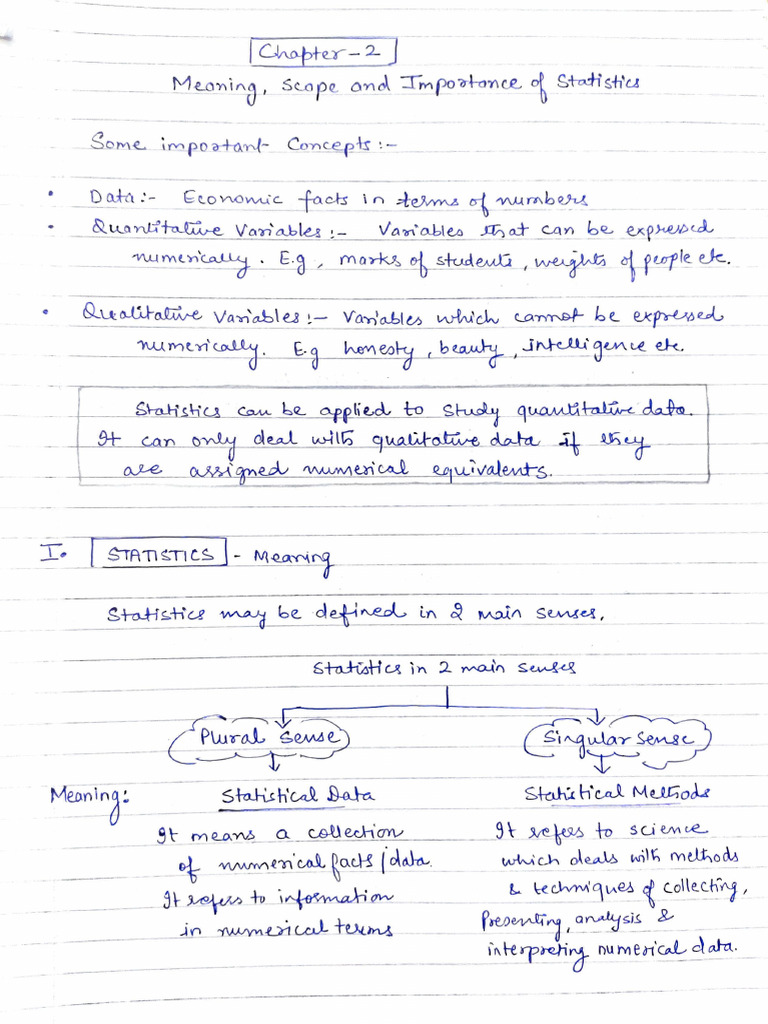 Chapter-2
Meaning, Scope and Importance of Statistics
Some important Concepts:-
• Data:- Economic facts in terms of numbers
• Quantitative Variables:- Variables that can be expressed
numerically. E.g, marks of students, weights of people etc.
• Qualitative Variables:- Variables which cannot be expressed
numerically. E.g honesty, beauty, intelligence etc.
Statistics can be applied to study quantitative data.
It can only deal with qualitative data if they
are assigned numerical equivalents.
I. STATISTICS - Meaning
Statistics may be defined in 2 main senses.
Statistics in 2 main senses
Plural Sense
Singular Sense
Meaning:
Statistical Data
It means a collection
of numerical facts/data.
It refers to information
in numerical terms
Statistical Methods
It refers to science
which deals with methods
& techniques of collecting,
Presenting, analysis &
interpreting numerical data.